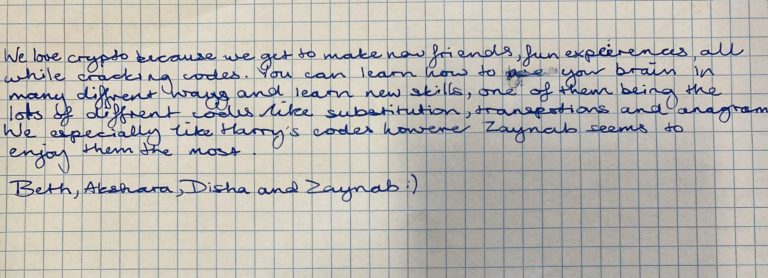 We love crypto because we get to make new friends, fun expeirences, all
while cracking codes. You can learn how to use your brain in
many diffrent ways and learn new skills, one of them being the
lots of diffrent codes like substitution, transpotions and anagram
We especially like Harry's codes however Zaynab seems to
enjoy them the most.
Beth, Akshara, Disha and Zaynab :)